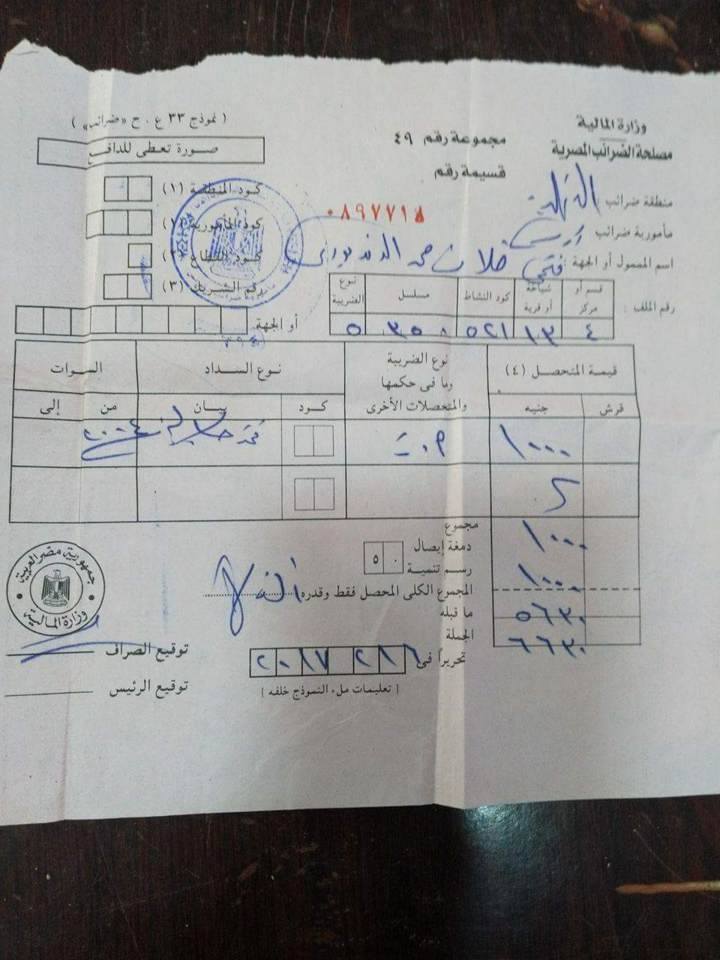 وزارة المالية
مصلحة الضرائب المصرية
مجموعة رقم ٤٩
قسيمة رقم
٠٨٩٧٧١٨
( نموذج ٣٣ ع . ح «ضرائب» )
صورة تعطى للدافع
منطقة ضرائب
مأمورية ضرائب
اسم الممول أو الجهة : فتحى
رقم الملف :
قسم أو مركز
شياخة أو قرية
كود النشاط
مسلسل
نوع الضريبة
٤
١٣
٥٢١
٥
كود المنطقة (١)
كود المأمورية (٢)
كود القطاع (٣)
رقم الشريك (٣)
أو الجهة
قيمة المتحصل (٤)
نوع الضريبة وما فى حكمها والمتحصلات الأخرى
نوع السداد
السنوات
قرش
جنيه
كود
بيان
من
إلى
١٠٠٠
٢٠٠٤
مجموع
١٠٠٠
دمغة إيصال
رسم تنمية
٥٠
المجموع الكلى المحصل فقط وقدره
١٠٠٠
ما قبله
٥٦٣٠
الجملة
٦٦٣٠
تحريراً فى
٢٠١٧
( تعليمات ملء النموذج خلفه )
جمهورية مصر العربية
وزارة المالية
توقيع الصراف
توقيع الرئيس